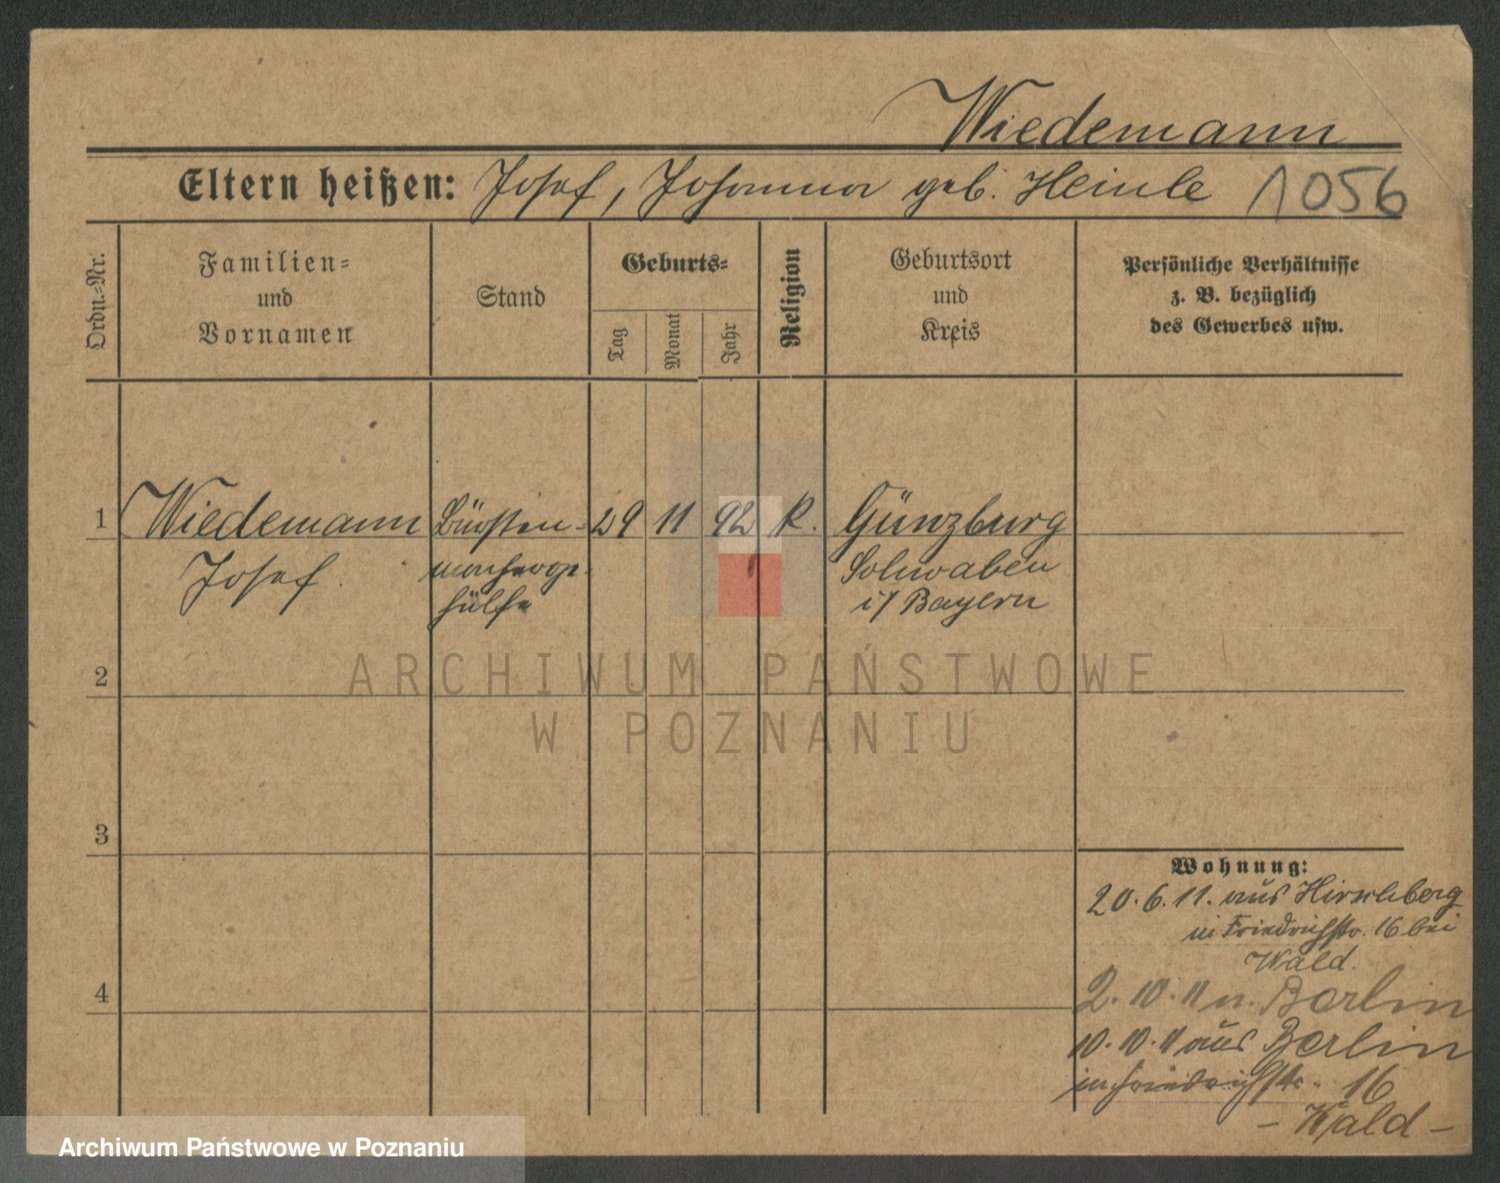 Wiedemann
Eltern heißen: Josef, Johanna geb. Heinle 1056
Ordn.-Nr.
Familien-
und
Vornamen
Stand
Geburts-
Tag
Monat
Jahr
Religion
Geburtsort
und
Kreis
Persönliche Verhältnisse
z. B. bezüglich
des Gewerbes usw.
1 Wiedemann Bürsten- 29 11 92 K. Günzburg
Josef. macherge- Schwaben
hülfe i/ Bayern
2
ARCHIWUM PAŃSTWOWE
W POZNANIU
3
Wohnung:
20.6.11. aus Hirschberg
in Friedrichstr. 16 bei
Wald.
4
2.10.11 n. Berlin
10.10.11 aus Berlin
in Friedrichstr. 16
- Wald -
Archiwum Państwowe w Poznaniu